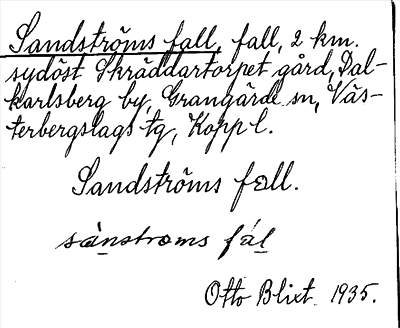 Sandströms fall, fall, 2 km.
sydöst Skräddartorpet gård, Dal-
karlsberg by, Grangärde sn, Väs-
terbergslags tg, Koppl.
Sandströms fall.
sànstroms fál
Otto Blixt 1935.